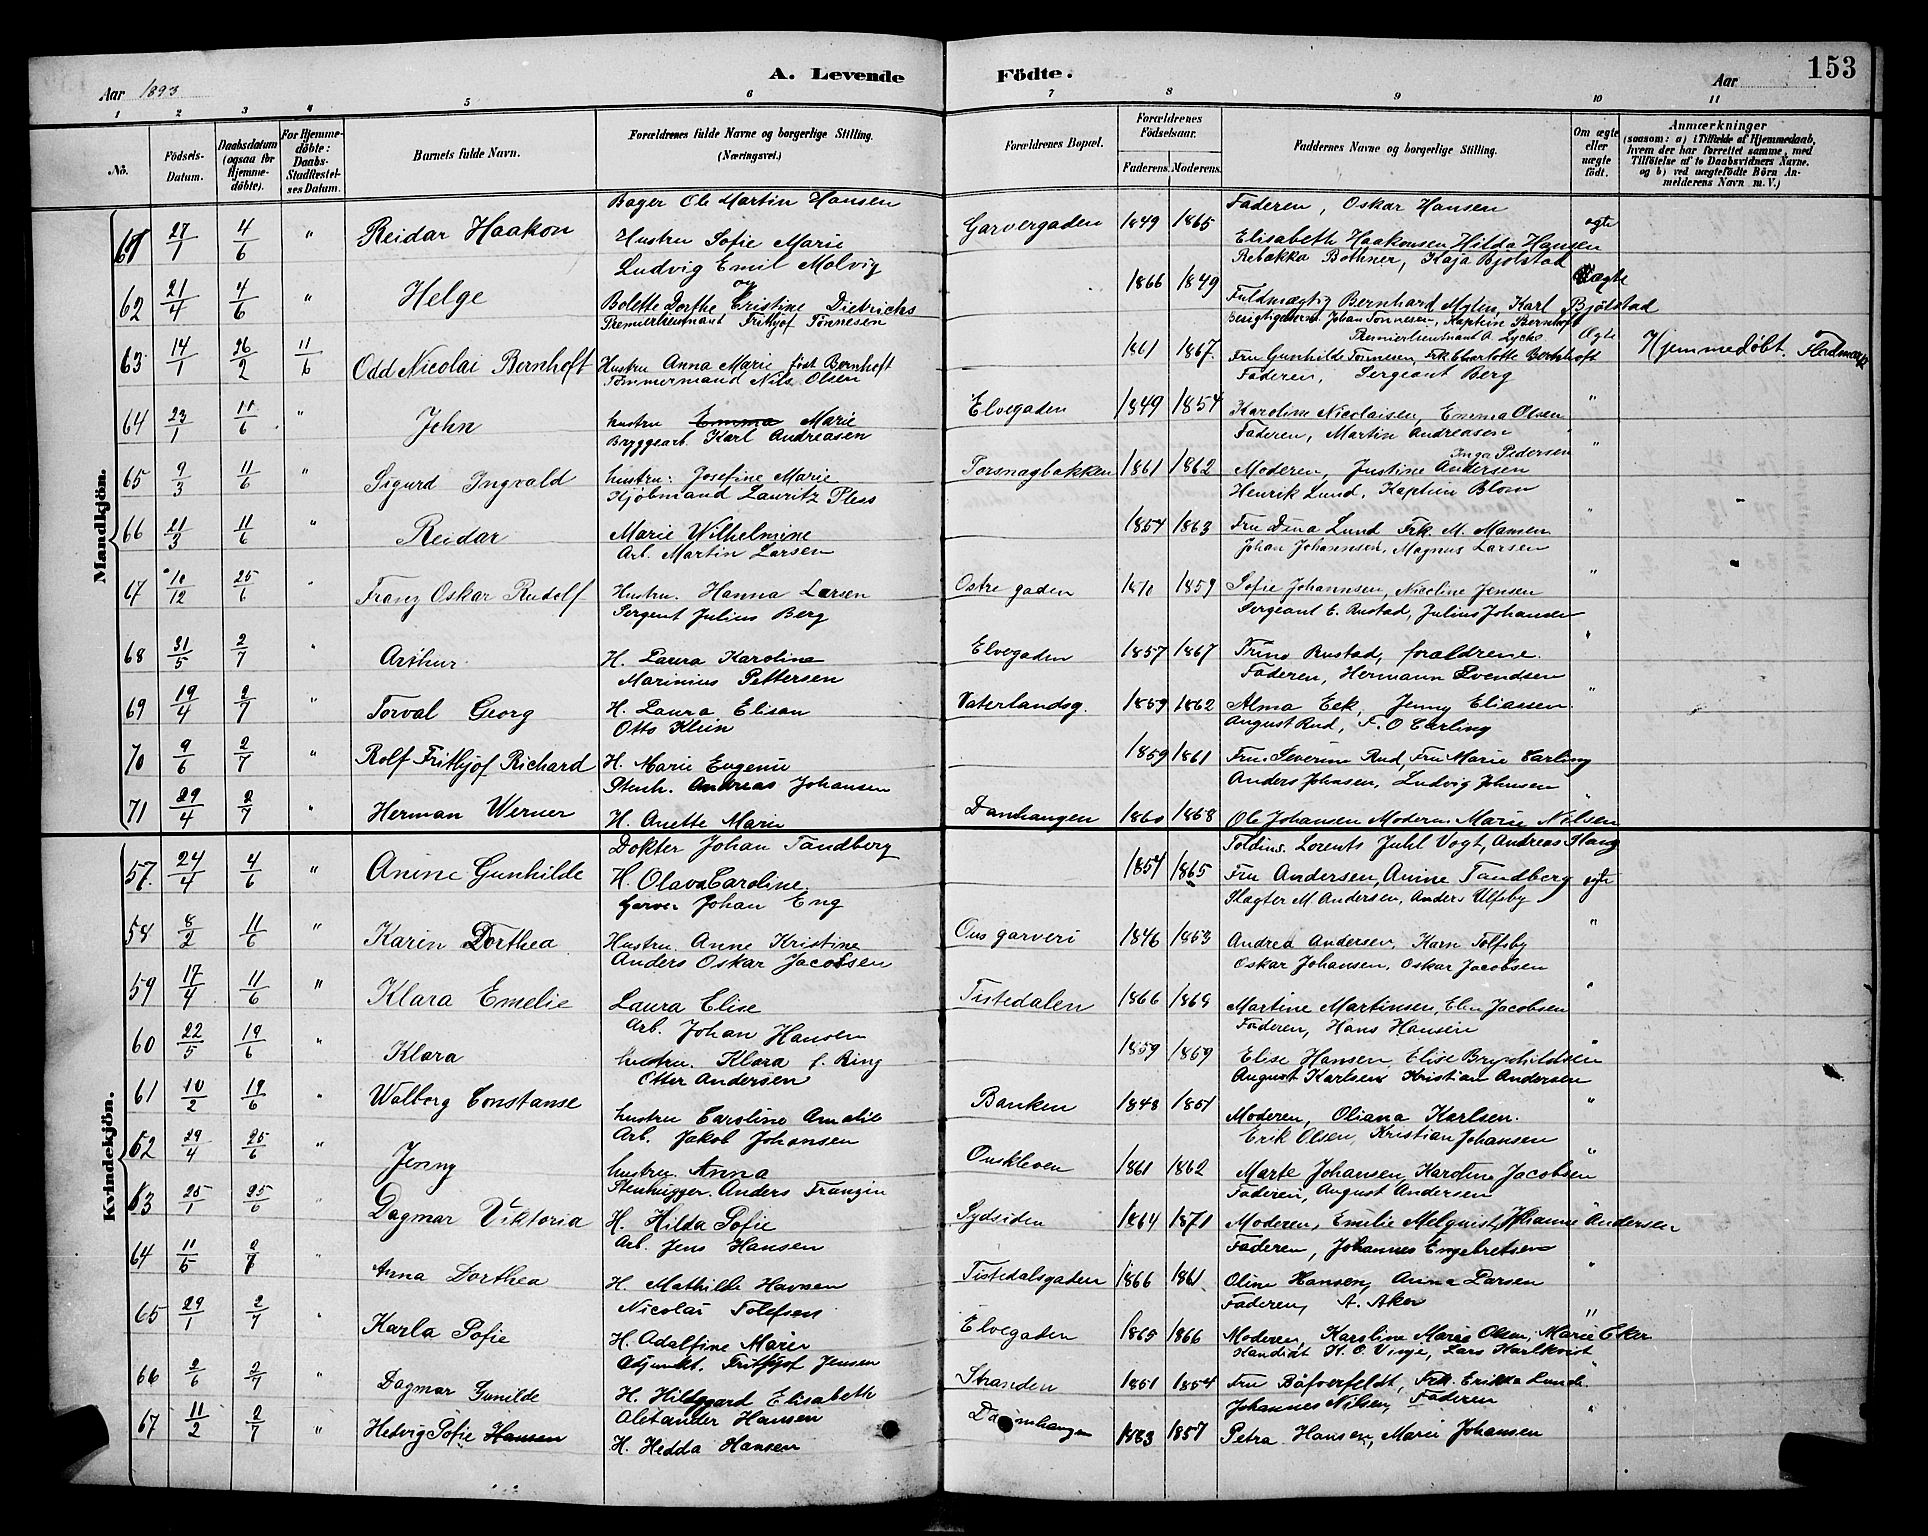 A. Levende Födte.
153
Aar 1893
Aar
1 2 3 4 5 6 7 8 9 10 11
No.
Födsels-Datum.
Daabsdatum (ogsaa for Hjemme-döbte).
For Hjemme-döbte: Daabs-Stadfæstel-ses Datum.
Barnets fulde Navn.
Forældrenes fulde Navne og borgerlige Stilling. (Næringsvei.)
Forældrenes Bopæl.
Forældrenes Födselsaar.
Faderens. Moderens.
Faddernes Navne og borgerlige Stilling.
Om ægte eller uægte födt.
Anmærkninger (saasom: a) i Tilfælde af Hjemmedaab, hvem der har forrettet samme, med Tilföielse af to Daabsvidners Navne, og b) ved uægtefödte Börn An-melderens Navn m. V.)
Mandkjön.
Bager Ole Martin Hansen Faderen, Oskar Hansen
61 27/1 4/6 " Reidar Haakon Hustru Sofie Marie Garvergaden 1849 1865 Elisabeth Haakonsen Hilda Hansen ægte
Ludvig Emil Molvig Rebekka Bothner, Kaja Bjølstad
62 21/4 4/6 " Helge og Bolette Dorthe Cristine Dietrichs 1866 1849 Fuldmægtig Bernhard Mylen, Karl Bjölstad Uægte
Premierleutnant Frithjof Tönnesen Johan Tonnesen, Kaptein Bernhoft
Premierlieutnant A. Lycke
63 14/1 26/2 11/6 Odd Nicolai Bernhoft Hustru Anna Marie föst Bernhoft 1861 1867. Fru Gunhilde Tönnesen, Frk Charlotte Bernhoft Ogte Hjemmedöbt.
Tömmermand Nils Olsen Faderen, Sergeant Berg
64 23/1 11/6 " John hustru Emma Marie Elvegaden 1849 1854 Karoline Nicolaisen, Emma Olsen "
Bryggearb. Karl Andreasen Faderen, Martin Andreasen
Inga Pedersen
65 9/3 11/6 " Sigurd Ingvald hustru: Josefine Marie Torsnagbakken 1861 1862 Moderen, Justine Andersen "
Kjöbmand Lauritz Pless Henrik Lund, Kaptein Blom
66 21/3 11/6 " Reidar Marie Wilhelmine 1854 1863 Fru Dina Lund Frk. M. Mansen "
Arb. Martin Larsen Johan Johannsen, Magnus Larsen
67 10/12 25/6 " Franz Oskar Rudolf Hustru. Hanna Larsen Ostre gaden 1859 Sofie Johannsen, Nicoline Jensen "
Sergent Julius Berg Sergeant E. Rustad, Julius Johansen
68 31/5 2/7 " Arthur. H. Laura Karoline Elvegaden 1857 1867 Trine Rustad, forældrene. "
Marinius Pettersen Faderen, Hermann Svendsen
69 19/4 2/7 " Torval Georg H. Laura Elisan Vaterlandsg. 1859 1862 Alma Eek, Jenny Eliassen "
Otto Klein August Rud, F. O Carling
70 9/6 2/7 " Rolf Frithjof Richard H. Marie Eugenie 1859 1861 Fru Severine Rud, Fru Marie Carling
Stenh. Andreas Johansen Anders Johnsen, Ludvig Johnsen
71 29/4 2/7 " Herman Werner H. Anette Marie Damhangen 1860 1858 Ole Johansen Moderen Marie Nilsen "
Kvindekjön.
Dokter Johan Tandberg Toldins. Lorents Juhl Vogt, Andreas Stang
57. 24/4 4/6 " Anine Gunhilde H. Olava Caroline, 1854 1865 Fru Andersen, Anine Tandberg ægte
Garver Johan Eng Slagter M. Andersen, Anders Ulfsby
58 8/2 11/6 " Karin Dorthea Hustru. Anne Kristine Ous garveri 1846 1853 Andrea Andersen, Karn Tolfsby "
Anders Oskar Jacobsen Oskar Johansen, Oskar Jacobsen
59 17/4 11/6 " Klara Emelie Laura Elise Tistedalen 1866 1869 Martine Martinsen, Elen Jacobsen "
Arb. Johan Hansen Faderen, Hans Hansen
60 22/5 19/6 " Klara hustru. Klara f. Ring 1859 1859 Elise Hansen, Elise Brynhildsen "
Otter Andersen August Karlsen Kristian Andersen
61 10/2 19/6 " Walborg Constanse hustru Caroline Amalie Banken 1848 1851 Moderen, Oliana Karlsen. "
Arb. Jakob Johansen Erik Olsen, Kristian Johansen
62 29/4 25/6 " Jenny hustru. Anna Ouskleven 1861 1862 Marte Johansen, Karoline Jacobsen "
Stenhugger. Anders Franzin Faderen, August Andersen
63 25/1 25/6 " Dagmar Viktoria H. Hilda Sofie Sydsiden 1864 1871 Moderen, Emilie Melqvist, Johanne Andersen "
Arb. Jens Hansen Faderen, Johannes Engebretsen
64 11/5 2/7 " Anna Dorthea H. Mathilde Havnen Tistedalsgaden 1866 1861 Oline Hansen, Anna Larsen "
Nicolai Tolefsen Faderen, A. Aker
65 29/1 2/7 " Karla Sofie H. Adalfine Marie Elvegaden 1865 1866 Moderen, Karoline Marie Olsen, Marie Eker "
Adjunkt. Frithjof Jensen Kandidat K. O. Vinje, Lars Karlkvist
66 2/6 2/7 " Dagmar Gunilde H. Hildegaard Elisabeth Stranden 1851 1854 Fru Böfverfeldt, Frk. Erikka Lund. "
Alexander Hansen Johannes Nilsen, Faderen
67 11/2 2/7 " Hedvig Sofie Hansen H. Hedda Hansen Damhangen 1853 1857 Petra Hansen, Marie Johansen "